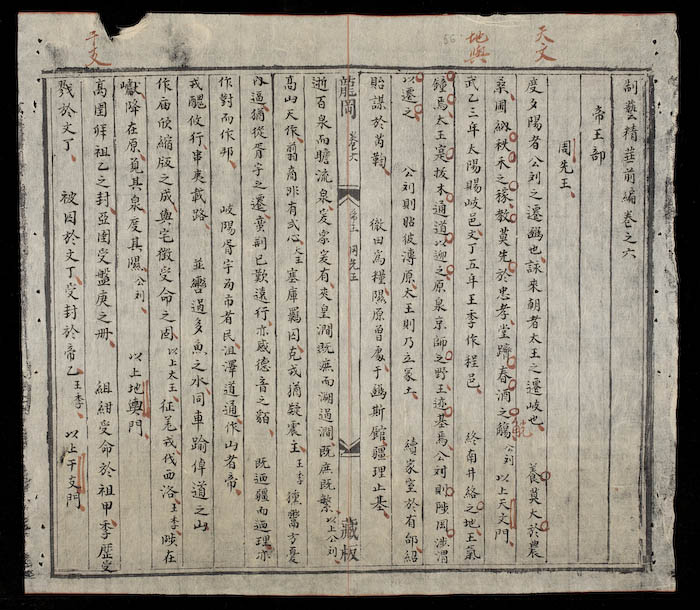 天文
地輿
干支
制藝精華前編卷之六
帝王部
周先王
度夕陽者公刘之遷豳也詠来朝者太王之遷岐也 養莫大於農
桑圃納秩禾之稼教莫先於忠孝堂躋春酒之觴公刘 以上天文門
觥
武乙三年太陽賜岐邑文丁五年王季作程邑 終南井絡之地王氣
鐘焉太王寔拔木通道以迎之原泉京師之野王迹基焉公刘則陟涉渭
以遷之 公刘則貽彼溥原太王則乃立冢土 續家室於有邰紹
貽謀於芮鞫 徹田為糧隰原曾處于豳斯館疆理止基
龍岡 卷六 帝王 周先王 藏板
逝百泉而瞻流泉爰衆爰有夾皇澗既庶而溯過澗既庶既繁以上公刘
高山天作翦商非有武心太王 塞庫羈因克戎猶疑震王王季 徳讐方憂
内逼猶從胥宇之遷蠻荊已歎遠行亦感徳音之貊 既迺疆而迺理亦
作對而作邦 岐陽胥宇為市者民沮澤道通作山者帝
戎醜攸行串夷載路 並轡過多魚之水同車踰偉道之山
作庙欣縮版之成與宅徵受命之固以上太王 征羗戎伐西洛王季 陟在
巘降在原覓其泉度其隰公刘 以上地輿門
髙圉能祖乙之封亞圉受盤庚之册 組紺受命於祖甲季歴受
戮於文丁 被囚於文丁受封於帝乙王季 以上干支門